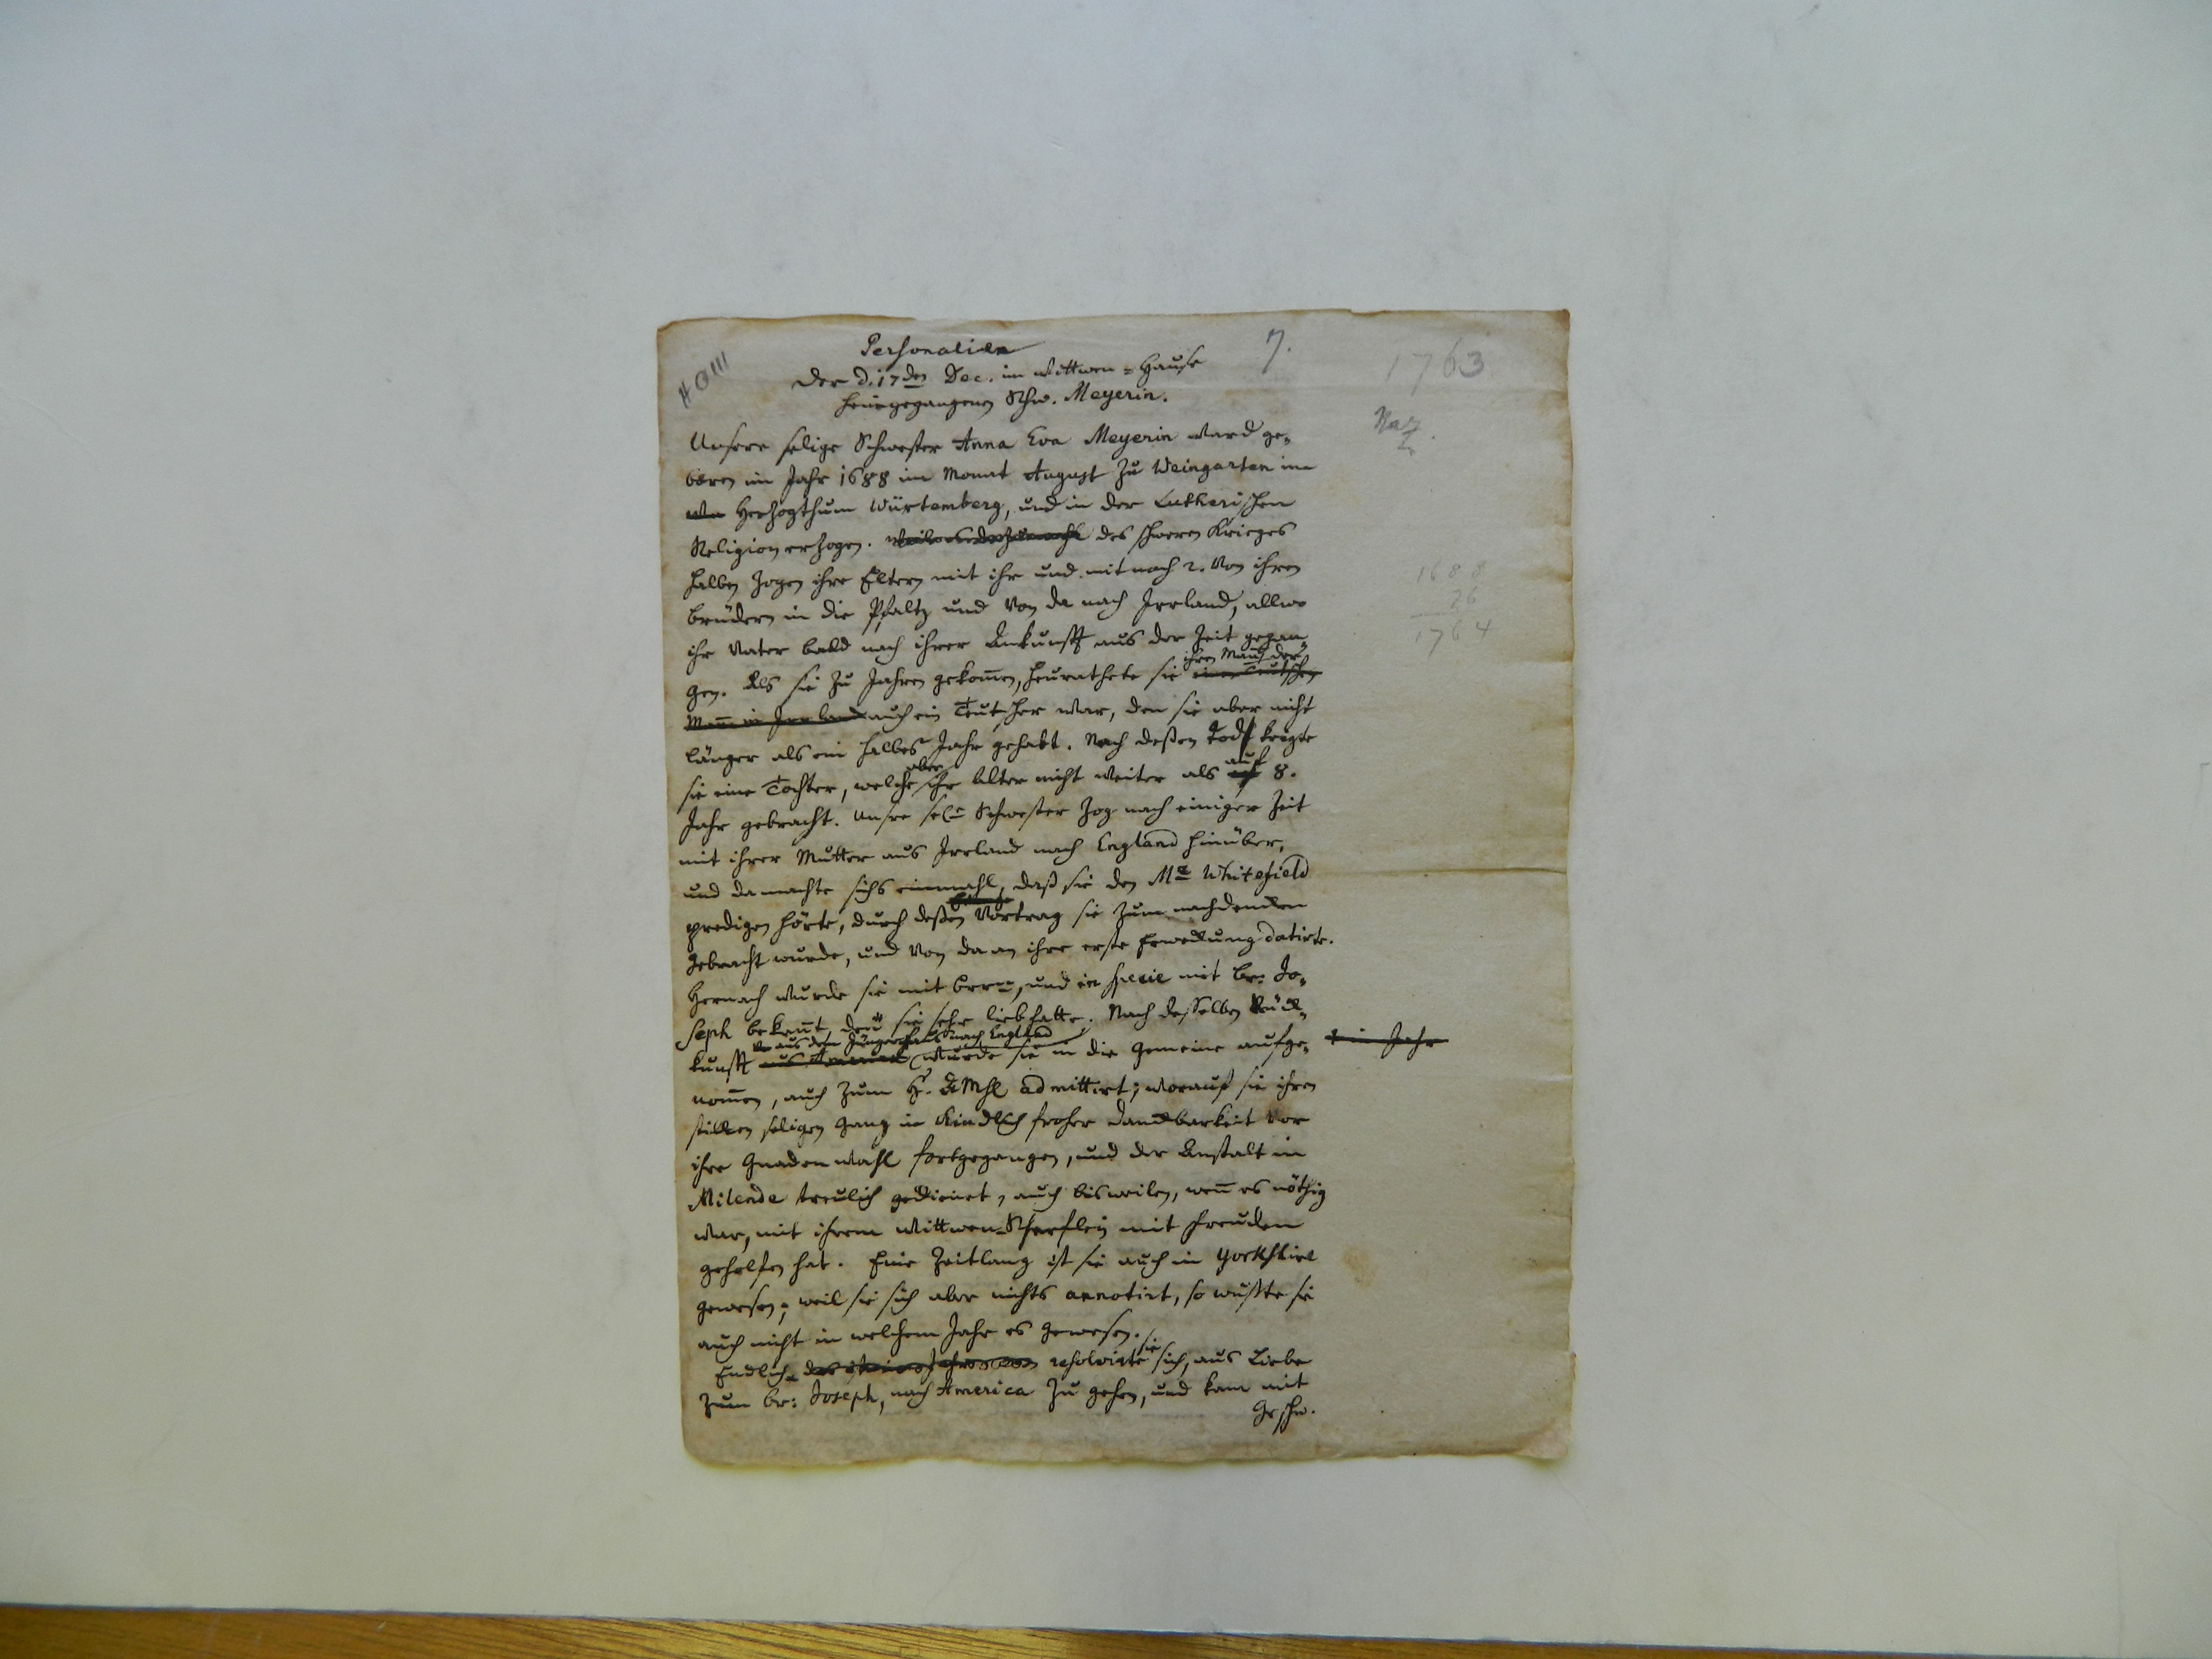 Personalien
7.
1763
der d. 17den Dec. im Wittwen-Hause
heimgegangenen Schw. Meyerin.
Naz.
Unsere selige Schwester Anna Eva Meyerin ward ge-
boren im Jahr 1688 im Monat August zu Weingarten im
Herzogthum Würtemberg, und in der Lutherischen
Religion erzogen. des schweren Krieges
halben zogen ihre Eltern mit ihr und mit noch 2. von ihren
1688
76
1764
brüdern in die Pfaltz und von da nach Irrland, allwo
ihr Vater bald nach ihrer Ankunfft aus der Zeit gegan-
gen. Als sie zu Jahren gekom̄en, heurathete sie einen Teutschen
ihren Man̄, der
Man̄ in Irrland auch ein Teutscher war, den sie aber nicht
länger als ein halbes Jahr gehabt. Nach deßen Tod kriegte
sie eine Tochter, welche aber ihr Alter nicht weiter als auf 8.
Jahr gebracht. Unsre sel. Schwester zog nach einiger Zeit
mit ihrer Mutter aus Irrland nach England hinüber,
und da machte sichs einmahl, daß sie den Mr. Whitefield
predigen hörte, durch deßen Vortrag sie zum nachdencken
gebracht wurde, und von da an ihre erste Erweckung datirte.
Hernach wurde sie mit Brrn, und in specie mit Br. Jo-
seph bekan̄t, den sie sehr lieb hatte. Nach desselben Rück-
kunfft aus America wurde sie in die Gemeine aufge-
aus dem Jüngerhaus nach England
ein Jahr
nom̄en, auch zum H. AMhl admittirt; worauf sie ihren
stillen seligen Gang in kindlich froher Danckbarkeit vor
ihre Gnadenwahl fortgegangen, und der Anstalt in
Milende treulich gedienet, auch bisweilen, wen̄ es nöthig
war, mit ihrem Wittwen-Scherflein mit Freuden
geholfen hat. Eine Zeitlang ist sie auch in Yorkshire
gewesen; weil sie sich aber nichts annotirt, so wußte sie
auch nicht in welchem Jahr es gewesen.
Endlich resolvirte sie sich, aus Liebe
zum Br: Joseph, nach America zu gehen, und kam mit
Geschw.